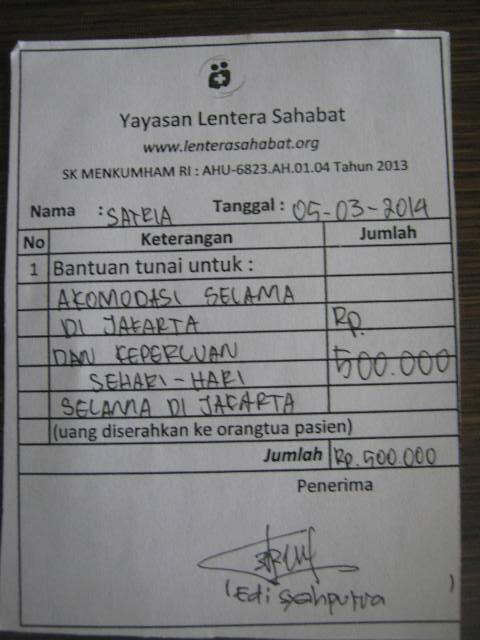 Yayasan Lentera Sahabat
www.lenterasahabat.org
SK MENKUMHAM RI : AHU-6823.AH.01.04 Tahun 2013
Nama : SATRIA Tanggal : 05-03-2014
No Keterangan Jumlah
1 Bantuan tunai untuk :
AKOMODASI SELAMA
DI JAKARTA Rp.
DAN KEPERLUAN 500.000
SEHARI-HARI
SELAMA DI JAKARTA
(uang diserahkan ke orangtua pasien)
Jumlah Rp. 500.000
Penerima
(Edi syahputra )